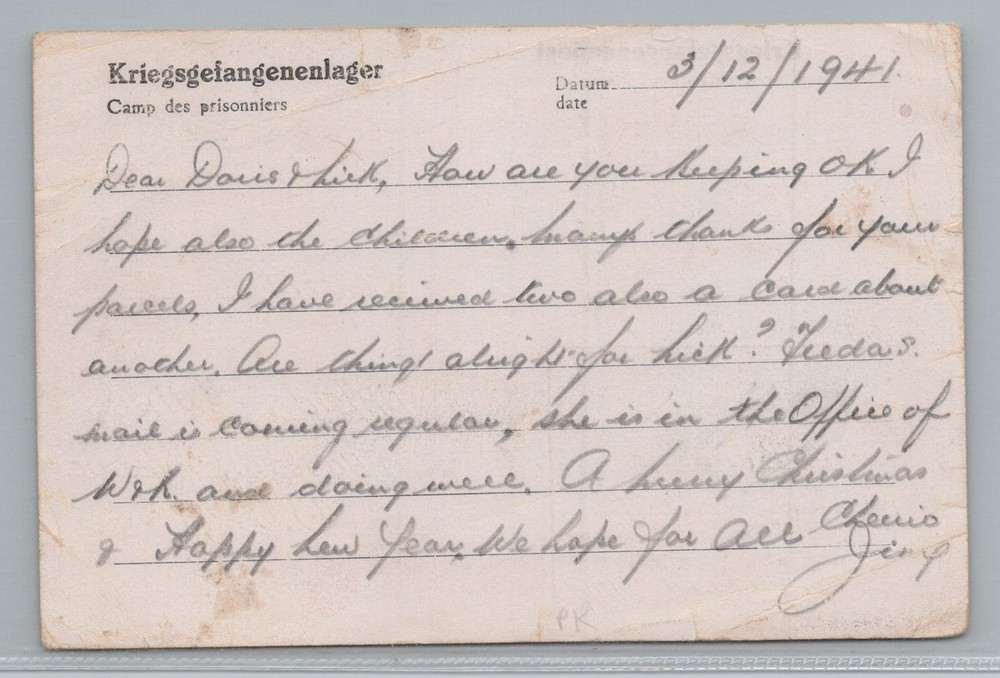 Kriegsgefangenenlager
Camp des prisonniers
Datum 3/12/1941.
date
Dear Doris & Nick, How are you keeping OK I
hope also the children. Many thanks for your
parcels, I have received two also a card about
another. Are things alright for Nick? Freda's.
mail is coming regular, she is in the Office of
W&R. and doing well. A Merry Christmas
& Happy New Year, We hope for All Cheerio
PK